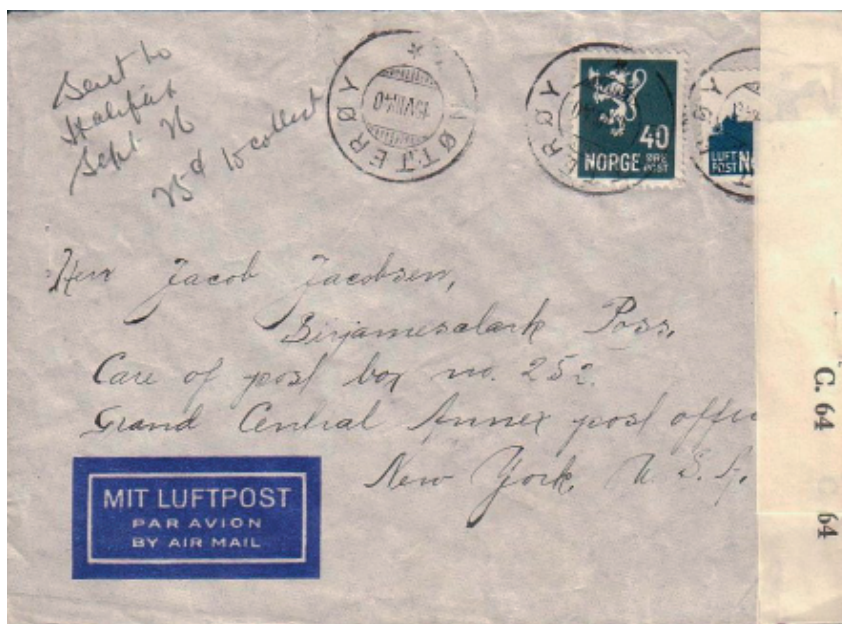 Sent to
Halifax
Sept
to collect
ØTTERØY
40
NORGE ØRE
POST
LUFT
POST
Herr Jacob Jacobsen,
Care of post box no. 252.
Grand Central Annex post offic
New York, U. S. A.
MIT LUFTPOST
PAR AVION
BY AIR MAIL
C. 64
C. 64